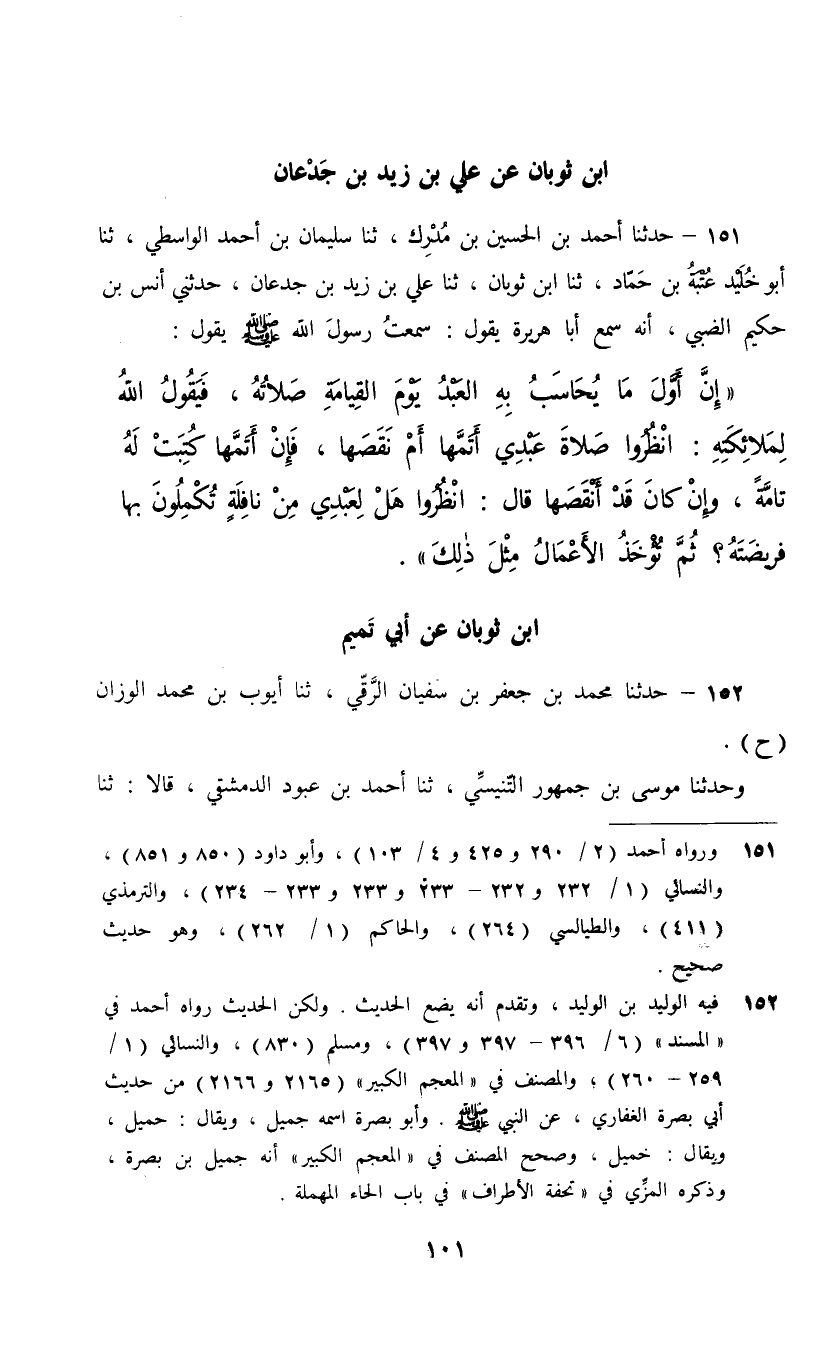 ابن ثوبان عن علي بن زيد بن جَدْعان
١٥١ – حدثنا أحمد بن الحسين بن مُدْرِك ، ثنا سليمان بن أحمد الواسطي ، ثنا
أبو خُلَيْد عُتْبَةُ بن حَمّاد ، ثنا ابن ثوبان ، ثنا علي بن زيد بن جدعان ، حدثني أنس بن
حكيم الضبي ، أنه سمع أبا هريرة يقول : سمعتُ رسولَ الله ﷺ يقول :
« إِنَّ أَوَّلَ مَا يُحَاسَبُ بِهِ العَبْدُ يَوْمَ القِيامَةِ صَلاتُهُ ، فَيَقُولُ اللهُ
لِمَلائِكَتِهِ : انْظُرُوا صَلاةَ عَبْدِي أَتَمَّها أَمْ نَقَصَها ، فَإِنْ أَتَمَّها كُتِبَتْ لَهُ
تامَّةً ، وإِنْ كانَ قَدْ أَنْقَصَها قال : انْظُرُوا هَلْ لِعَبْدِي مِنْ نافِلَةٍ تُكْمِلُونَ بها
فريضَتَهُ ؟ ثُمَّ تُؤْخَذُ الأَعْمَالُ مِثْلَ ذٰلِكَ » .
ابن ثوبان عن أبي تَميم
١٥٢ – حدثنا محمد بن جعفر بن سفيان الرَّقّي ، ثنا أيوب بن محمد الوزان
(ح) .
وحدثنا موسى بن جمهور التّنيسِّي ، ثنا أحمد بن عبود الدمشقي ، قالا : ثنا
١٥١ ورواه أحمد (٢ / ٢٩٠ و ٤٢٥ و ٤ / ١٠٣) ، وأبو داود (٨٥٠ و ٨٥١) ،
والنسائي (١ / ٢٣٢ و ٢٣٢ – ٢٣٣ و ٢٣٣ و ٢٣٣ – ٢٣٤) ، والترمذي
(٤١١) ، والطيالسي (٢٦٤) ، والحاكم (١ / ٢٦٢) ، وهو حديث
صحيح .
١٥٢ فيه الوليد بن الوليد ، وتقدم أنه يضع الحديث . ولكن الحديث رواه أحمد في
« المسند » (٦ / ٣٩٦ – ٣٩٧ و ٣٩٧) ، ومسلم (٨٣٠) ، والنسائي (١ /
٢٥٩ – ٢٦٠) ؛ والمصنف في « المعجم الكبير » (٢١٦٥ و ٢١٦٦) من حديث
أبي بصرة الغفاري ، عن النبي ﷺ . وأبو بصرة اسمه جميل ، ويقال : حميل ،
ويقال : خميل ، وصحح المصنف في « المعجم الكبير » أنه جميل بن بصرة ،
وذكره المزّي في « تحفة الأطراف » في باب الحاء المهملة .
١٠١